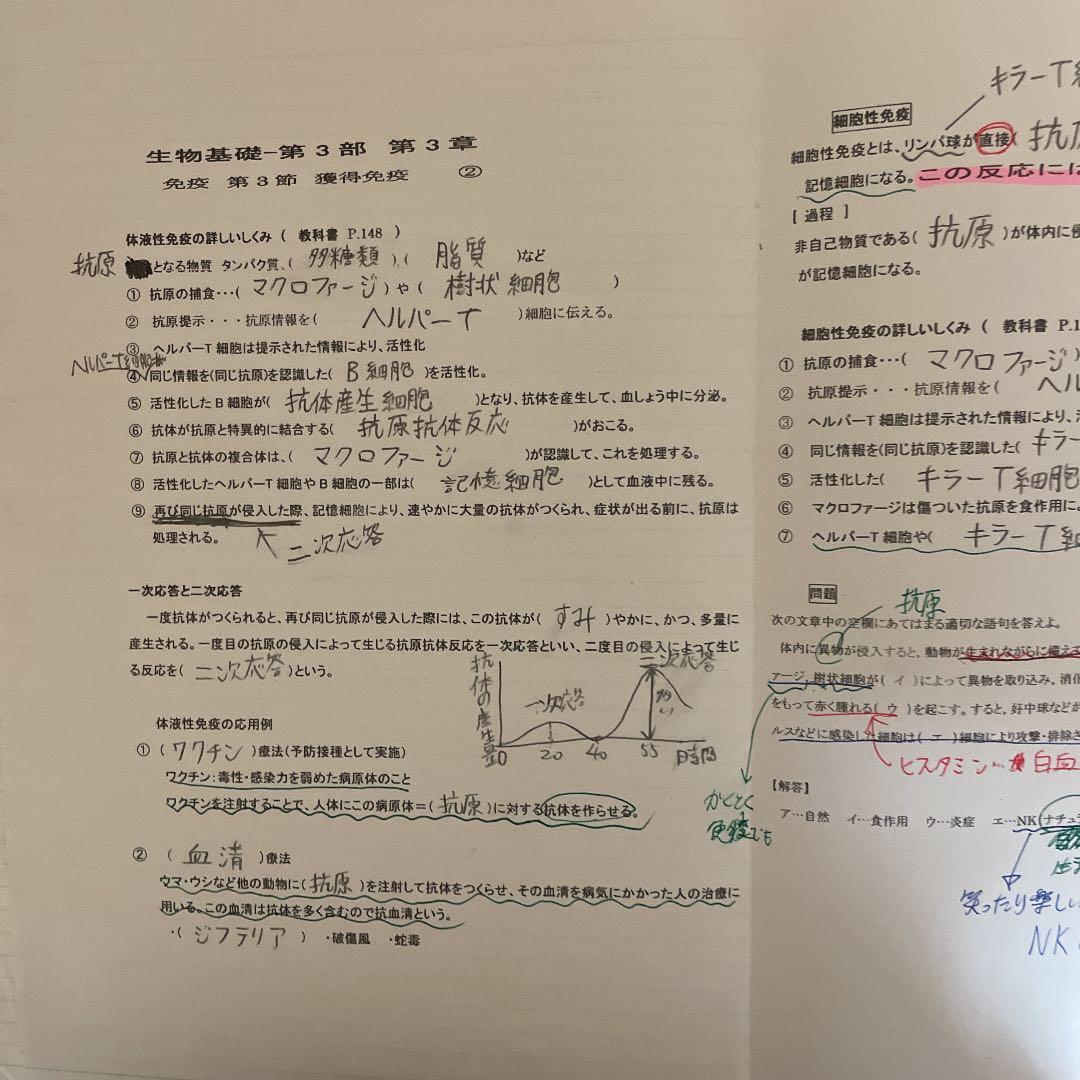 生物基礎−第3部 第3章
免疫 第3節 獲得免疫 ②
体液性免疫の詳しいしくみ ( 教科書 P.148 )
抗原 となる物質 タンパク質、( 多糖類 ),( 脂質 )など
① 抗原の捕食…( マクロファージ ) や ( 樹状細胞 )
② 抗原提示・・・抗原情報を( ヘルパーT )細胞に伝える。
③ ヘルパーT 細胞は提示された情報により、活性化
ヘルパーT細胞が
④ 同じ情報を(同じ抗原)を認識した( B細胞 )を活性化。
⑤ 活性化したB細胞が( 抗体産生細胞 )となり、抗体を産生して、血しょう中に分泌。
⑥ 抗体が抗原と特異的に結合する( 抗原抗体反応 )がおこる。
⑦ 抗原と抗体の複合体は、( マクロファージ )が認識して、これを処理する。
⑧ 活性化したヘルパーT 細胞やB細胞の一部は( 記憶細胞 )として血液中に残る。
⑨ 再び同じ抗原が侵入した際、記憶細胞により、速やかに大量の抗体がつくられ、症状が出る前に、抗原は
処理される。
二次応答
一次応答と二次応答
一度抗体がつくられると、再び同じ抗原が侵入した際には、この抗体が( すみ )やかに、かつ、多量に
産生される。一度目の抗原の侵入によって生じる抗原抗体反応を一次応答といい、二度目の侵入によって生じ
る反応を( 二次応答 )という。
抗体の産生量
一次応答
二次応答
多い
0 20 40 55 時間
体液性免疫の応用例
① ( ワクチン )療法(予防接種として実施)
ワクチン:毒性・感染力を弱めた病原体のこと
ワクチンを注射することで、人体にこの病原体=( 抗原 )に対する抗体を作らせる。
② ( 血清 )療法
ウマ・ウシなど他の動物に( 抗原 )を注射して抗体をつくらせ、その血清を病気にかかった人の治療に
用いる。この血清は抗体を多く含むので抗血清という。
・( ジフテリア ) ・破傷風 ・蛇毒
キラーT
細胞性免疫
細胞性免疫とは、リンパ球が直接( 抗
記憶細胞になる。この反応には
[ 過程 ]
非自己物質である( 抗原 )が体内に
が記憶細胞になる。
細胞性免疫の詳しいしくみ ( 教科書 P.1
① 抗原の捕食…( マクロファージ )
② 抗原提示・・・抗原情報を( ヘル
③ ヘルパーT 細胞は提示された情報により、
④ 同じ情報を(同じ抗原)を認識した( キラー
⑤ 活性化した( キラーT細胞
⑥ マクロファージは傷ついた抗原を食作用に
⑦ ヘルパーT 細胞や( キラーT細
問題
抗原
次の文章中の空欄にあてはまる適切な語句を答えよ。
体内に異物が侵入すると、動物が生まれながらに備え
アージ、樹状細胞が( イ )によって異物を取り込み、消化
をもって赤く腫れる( ウ )を起こす。すると、好中球などが
ルスなどに感染した細胞は( エ )細胞により攻撃・排除さ
ヒスタミン… 白血
かくとく
免疫でも
【解答】
ア…自然 イ…食作用 ウ…炎症 エ…NK(ナチュ
笑ったり楽しい
NK